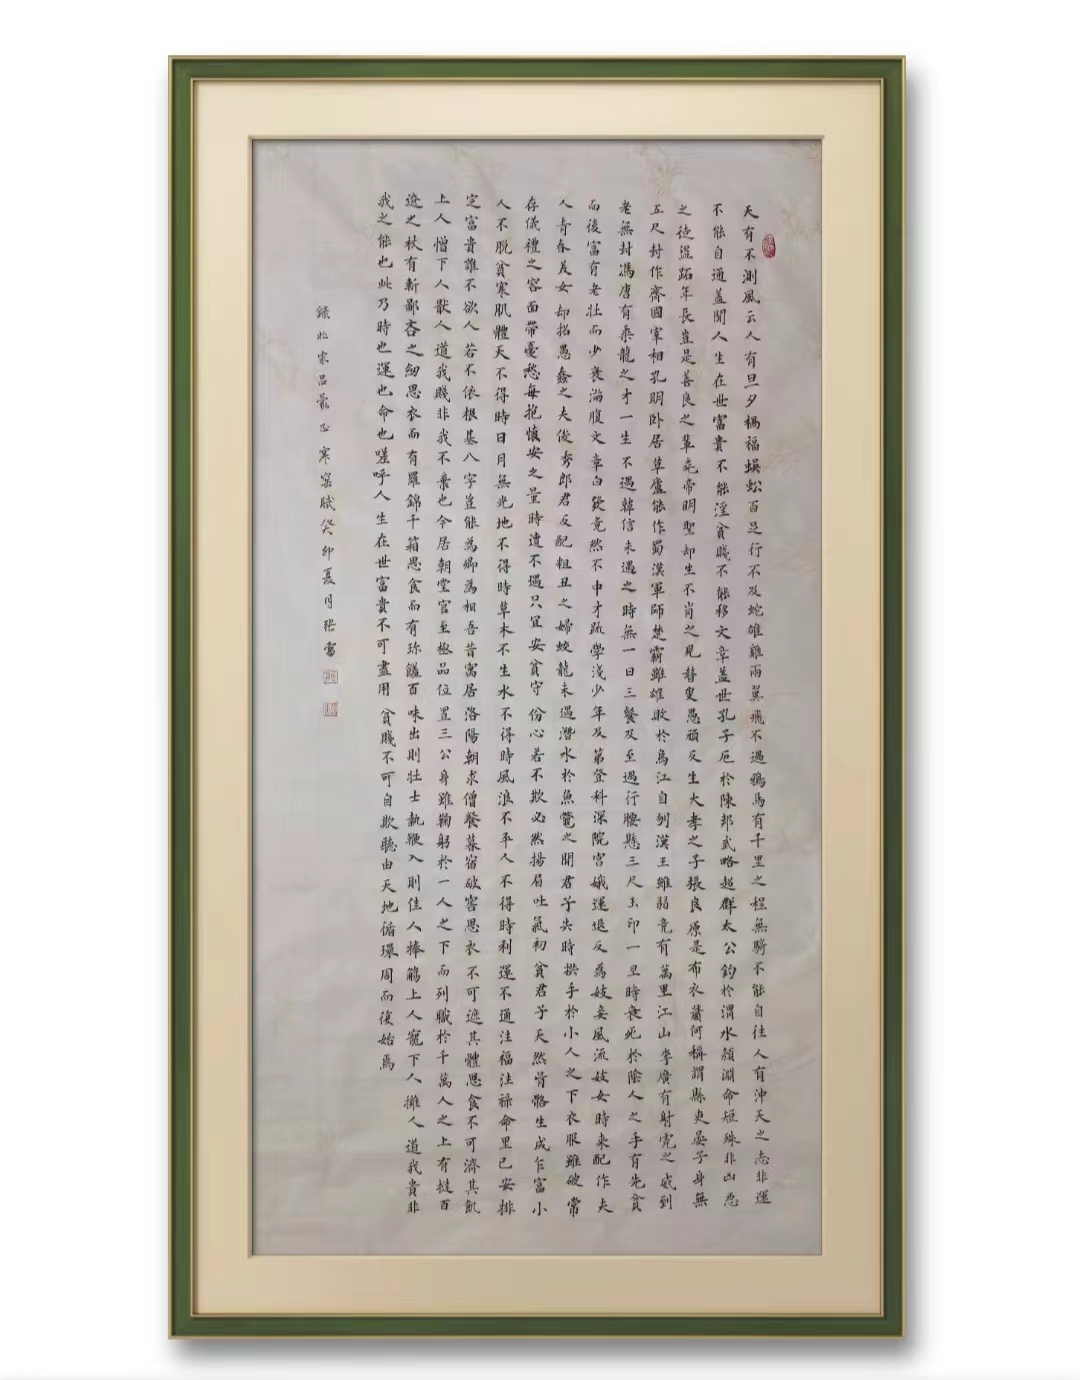 天有不測風云人有旦夕禍福蜈蚣百足行不及蛇雄雞兩翼飛不過鴉馬有千里之程無騎不能自往人有沖天之志非運
不能自通蓋聞人生在世富貴不能淫貧賤不能移文章蓋世孔子厄於陳邦武略超群太公釣於渭水顏淵命短殊非凶惡
之徒盜跖年長豈是善良之輩堯帝明聖却生不肖之兒瞽叟愚頑反生大孝之子張良原是布衣蕭何稱謂縣吏晏子身無
五尺封作齊國宰相孔明卧居草廬能作蜀漢軍師楚霸雖雄敗於烏江自刎漢王雖弱竟有萬里江山李廣有射虎之威到
老無封馮唐有乘龍之才一生不遇韓信未遇之時無一日三餐及至遇行腰懸三尺玉印一旦時衰死於陰人之手有先貧
而後富有老壯而少衰滿腹文章白發竟然不中才疏學淺少年及第登科深院宮娥運退反為妓妾風流妓女時來配作夫
人青春美女却招愚蠢之夫俊秀郎君反配粗丑之婦蛟龍未遇潛水於魚鱉之間君子失時拱手於小人之下衣服雖破常
存儀禮之容面帶憂愁每抱懷安之量時遭不遇只宜安貧守份心若不欺必然揚眉吐氣初貧君子天然骨骼生成乍富小
人不脫貧寒肌體天不得時日月無光地不得時草木不生水不得時風浪不平人不得時利運不通注福注禄命里已安排
定富貴誰不欲人若不依根基八字豈能為卿為相吾昔寓居洛陽朝求僧餐暮宿破窖思衣不可遮其體思食不可濟其飢
上人憎下人厭人道我賤非我不棄也今居朝堂官至極品位置三公身雖鞠躬於一人之下而列職於千萬人之上有撻百
遼之杖有斬鄙吝之劍思衣而有羅錦千箱思食而有珍饈百味出則壯士執鞭入則佳人捧觴上人寵下人擁人道我貴非
我之能也此乃時也運也命也嗟呼人生在世富貴不可盡用貧賤不可自欺聽由天地循環周而復始焉
錄北宋呂蒙正寒窑賦癸卯夏月張雷